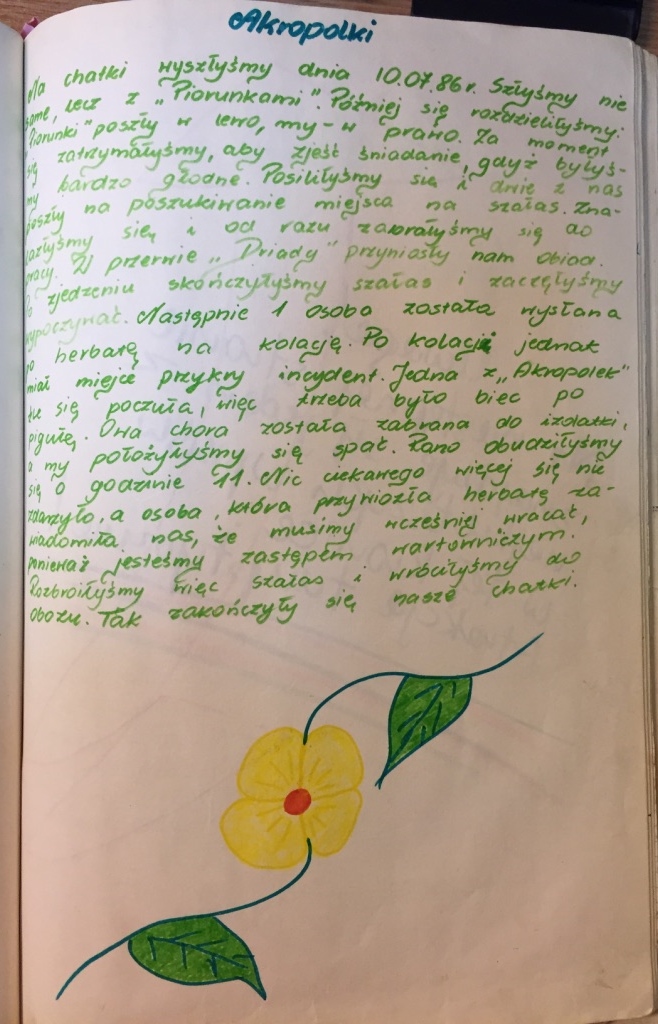 Akropolki
Na chatki wyszłyśmy dnia 10.07.86r. Szłyśmy nie
same, lecz z „Piorunkami". Później się rozdzieliłyśmy:
"Piorunki" poszły w lewo, my-w prawo. Za moment
się zatrzymałyśmy, aby zjeść śniadanie, gdyż byłyś-
my bardzo głodne. Posiliłyśmy się i dwie z nas
poszły na poszukiwanie miejsca na szałas. Zna-
lazłyśmy się i od razu zabrałyśmy się do
pracy. W przerwie „Driady" przyniosły nam obiad.
Po zjedzeniu skończyłyśmy szałas i zaczęłyśmy
wypoczywać. Następnie 1 osoba została wysłana
po herbatę na kolację. Po kolacji jednak
miał miejsce przykry incydent. Jedna z „Akropolek"
źle się poczuła, więc trzeba było biec po
pigułę. Owa chora została zabrana do izolatki,
a my położyłyśmy się spać. Rano obudziłyśmy
się o godzinie 11. Nic ciekawego więcej się nie
zdarzyło, a osoba, która przyniozła herbatę za-
wiadomiła nas, że musimy wcześniej wracać,
ponieważ jesteśmy zastępem wartowniczym.
Rozbroiłyśmy więc szałas i wróciłyśmy do
obozu. Tak zakończyły się nasze chatki.